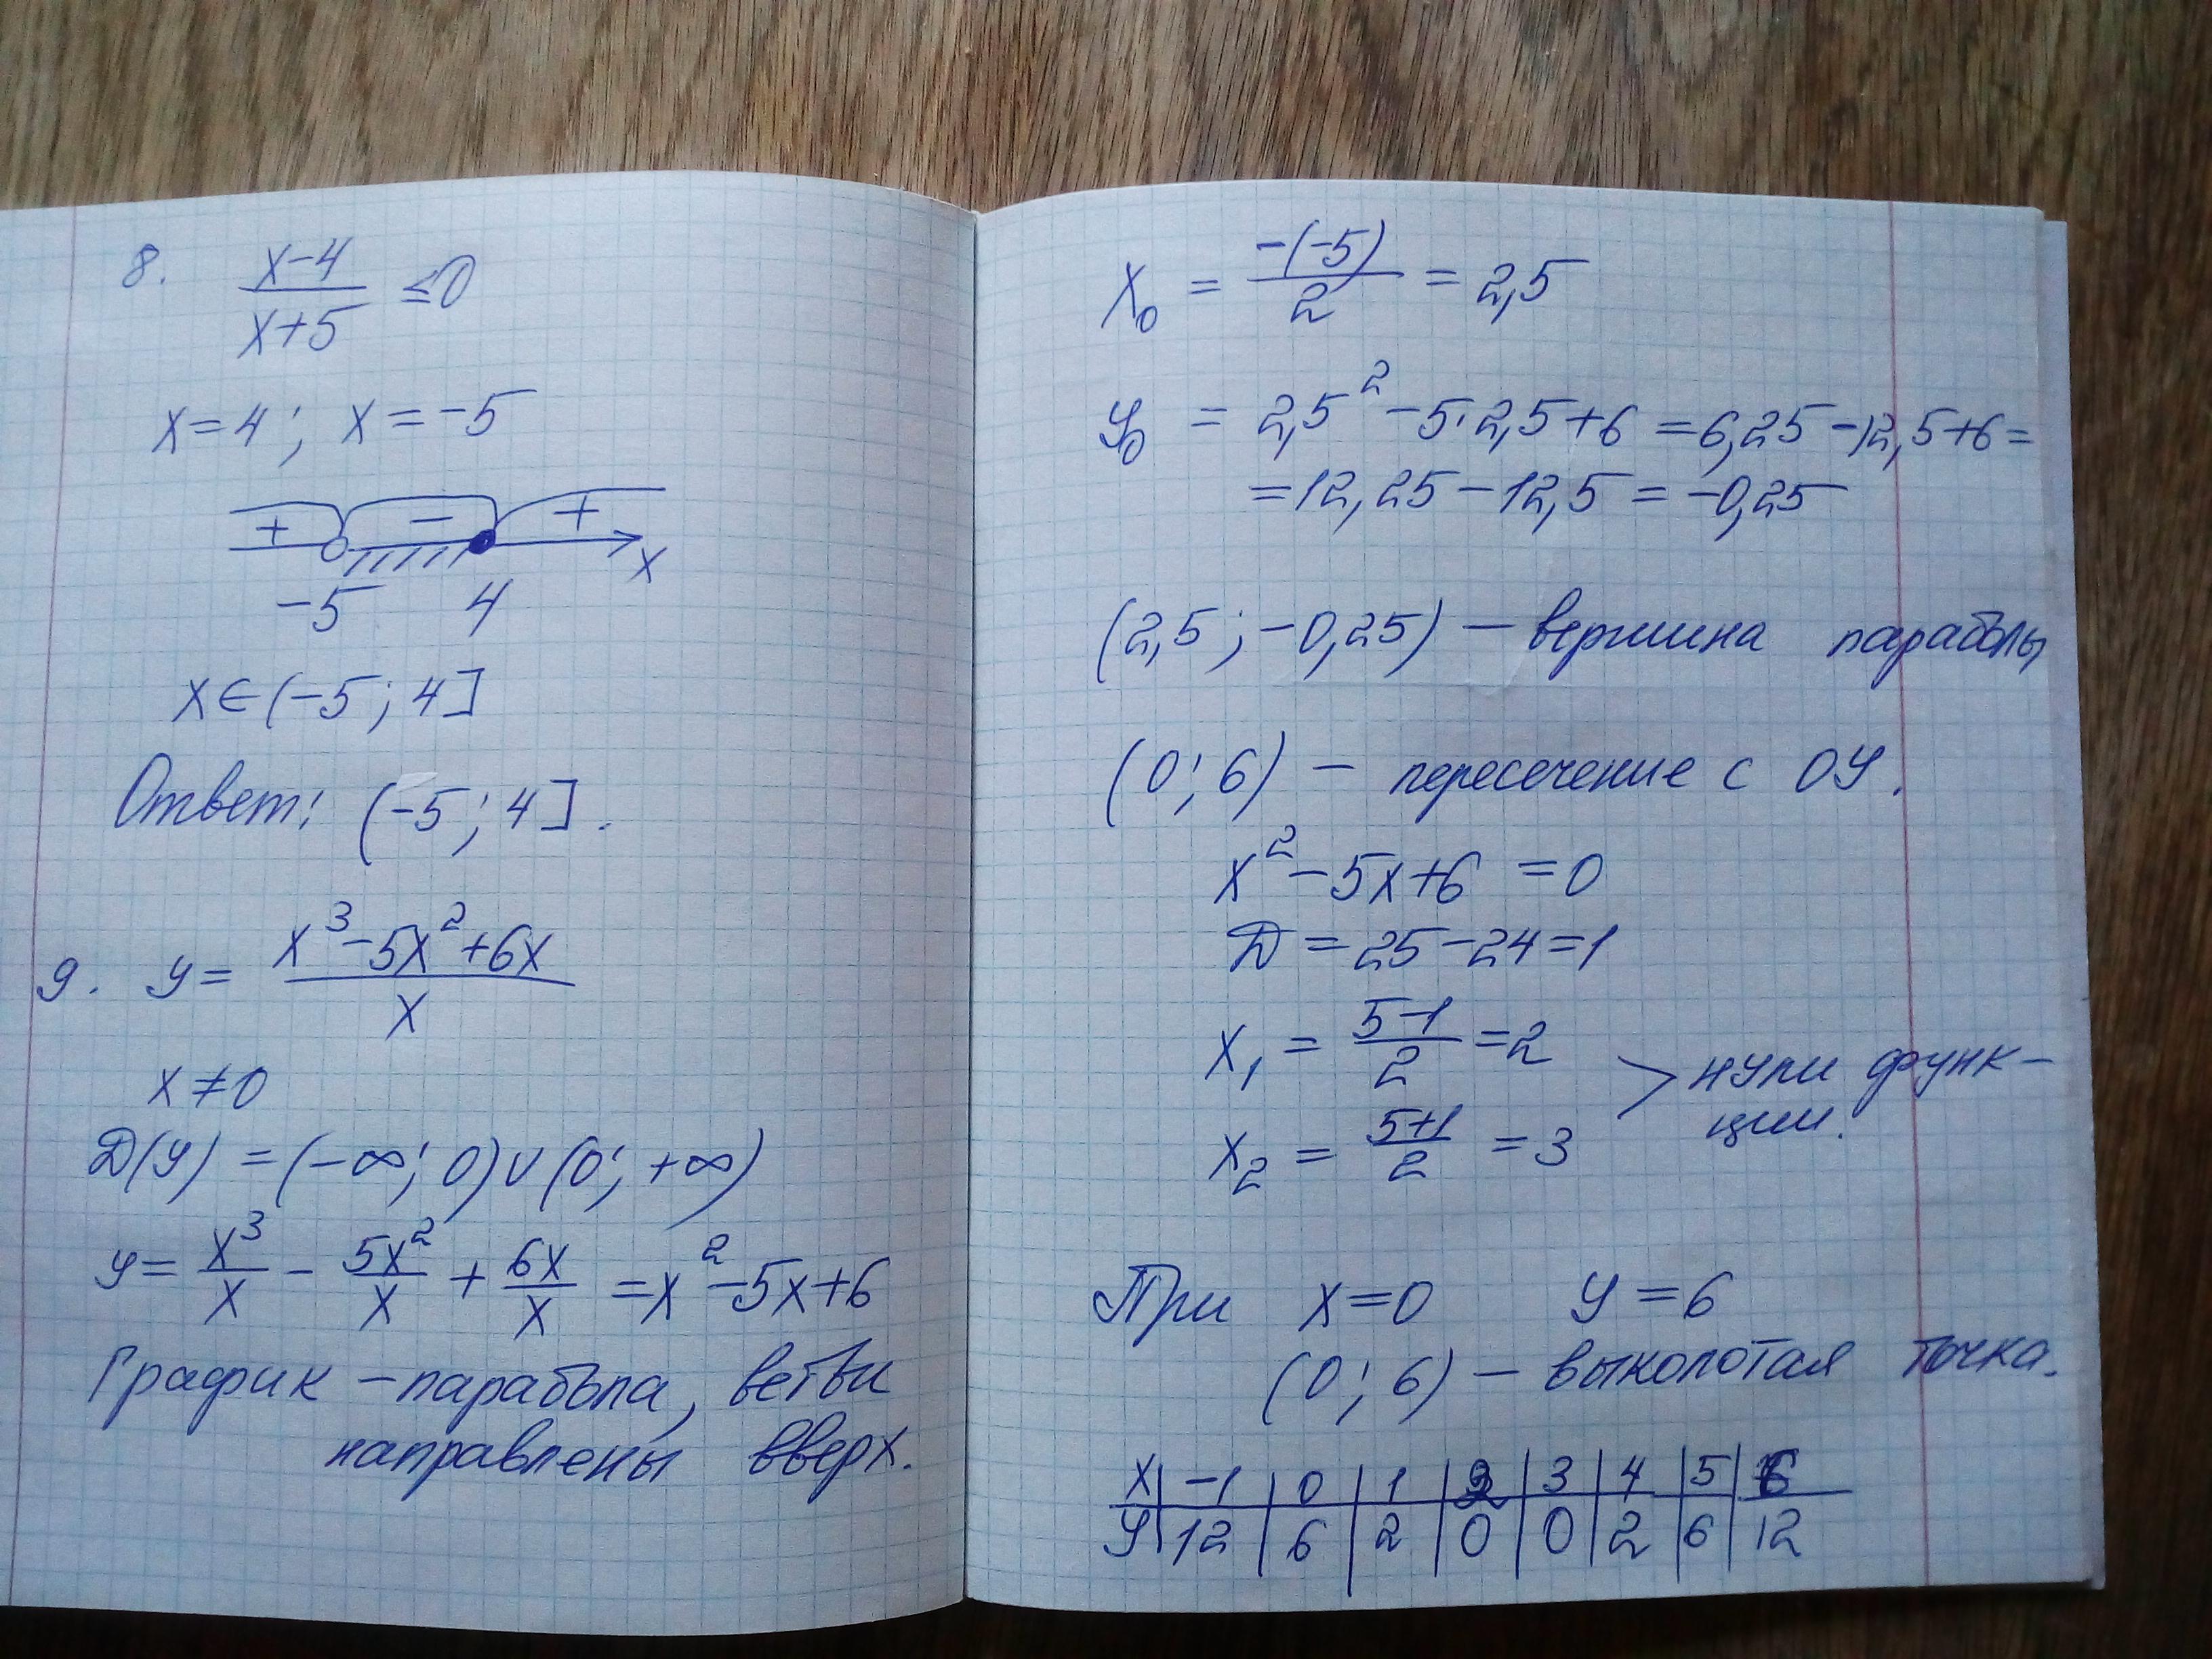 8. (x-4)/(x+5) ≤0
x=4; x=-5
+ - +
x
-5 4
x∈(-5; 4]
Ответ: (-5; 4].
9. y= (x³-5x²+6x)/x
x≠0
D(y) =(-∞; 0)∪(0; +∞)
y= x³/x - 5x²/x + 6x/x =x²-5x+6
График -парабола, ветви
направлены вверх.
x₀ = -(-5)/2 = 2,5
y₀ = 2,5²-5·2,5+6 =6,25-12,5+6=
=12,25-12,5=-0,25
(2,5; -0,25) - вершина параболы
(0; 6) - пересечение с ОУ.
x²-5x+6 =0
D=25-24=1
x₁ = (5-1)/2 =2
> нули функ-
ции.
x₂ = (5+1)/2 =3
При x=0 y=6
(0; 6) - выколотая точка.
x | -1 | 0 | 1 | 2 | 3 | 4 | 5 | 6
y | 12 | 6 | 2 | 0 | 0 | 2 | 6 | 12